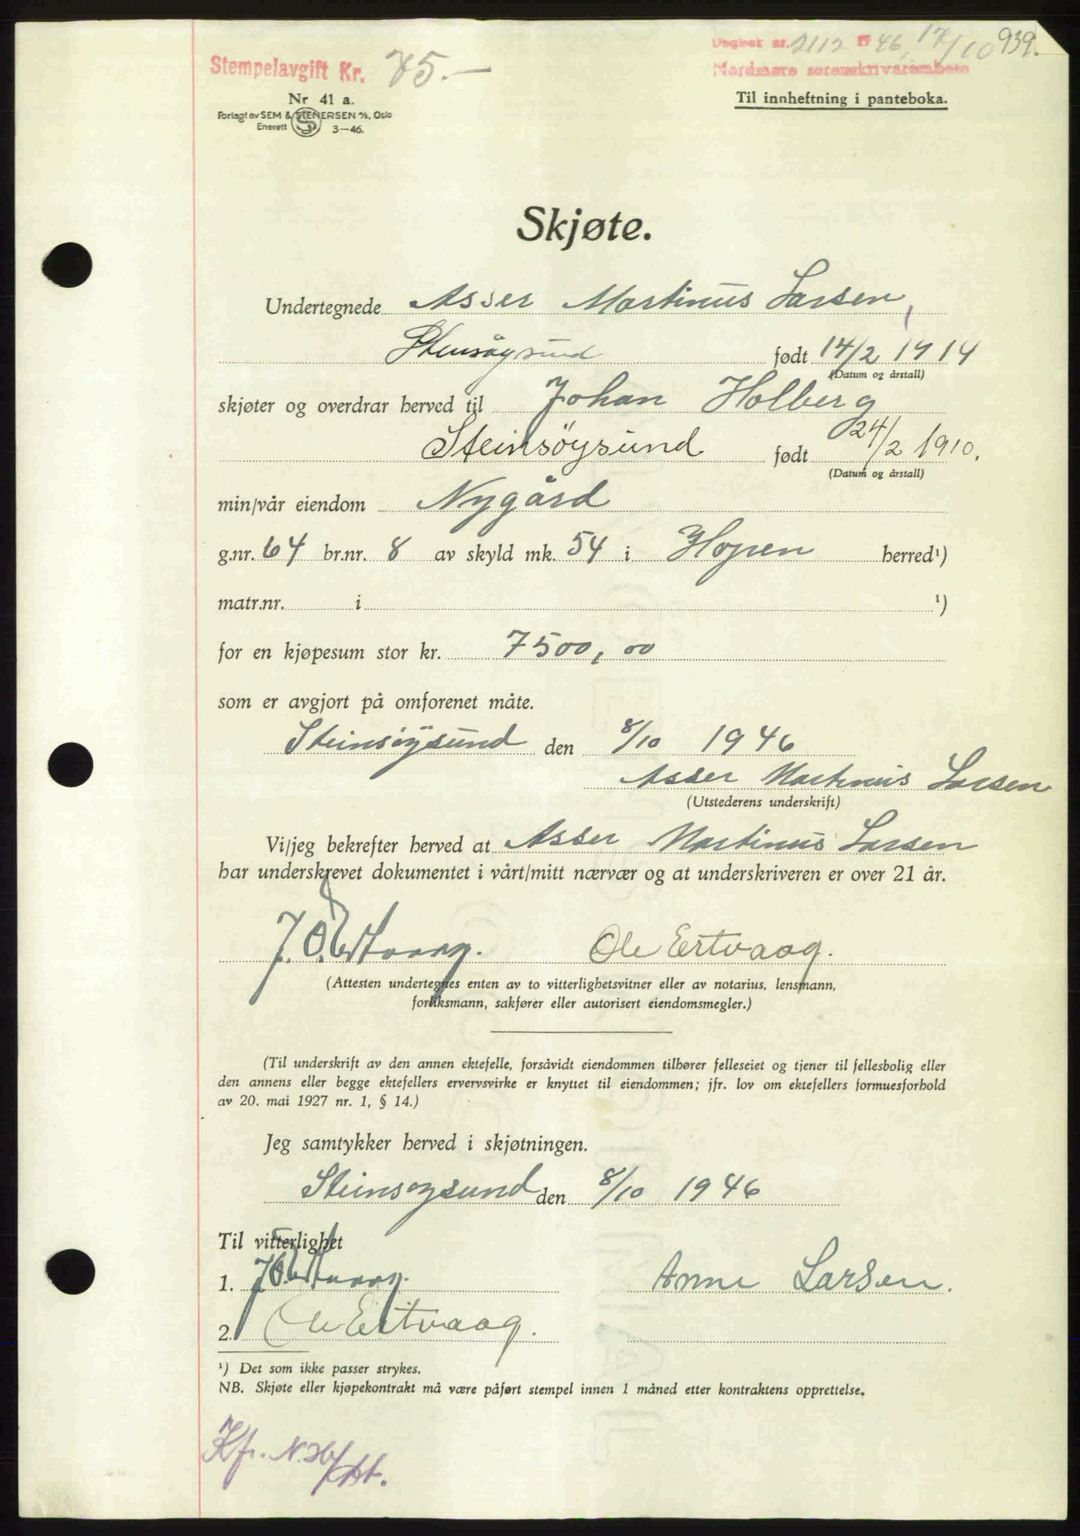 Dagbok nr. 2112 19 46, 17/10 939.
Stempelavgift Kr. 75.-
Nordmøre sorenskriverembete
Nr 41 a.
Til innheftning i panteboka.
Forlagt av SEM & STENERSEN A/S, Oslo
Enerett S 3-46.
Skjøte.
Undertegnede Asser Martinus Larsen,
Steinsøysund født 14/2 1914
(Datum og årstall)
skjøter og overdrar herved til Johan Holberg
Steinsöysund født 24/2 1910.
(Datum og årstall)
min/vår eiendom Nygård
g.nr. 64 br.nr. 8 av skyld mk. 54 i Hopen herred¹)
matr.nr. i ¹)
for en kjøpesum stor kr. 7500,00
som er avgjort på omforenet måte.
Steinsøysund den 8/10 1946
Asser Martinus Larsen
(Utstederens underskrift)
Vi/jeg bekrefter herved at Asser Martinus Larsen
har underskrevet dokumentet i vårt/mitt nærvær og at underskriveren er over 21 år.
J. O. Ole Ertvaag.
(Attesten undertegnes enten av to vitterlighetsvitner eller av notarius, lensmann,
forliksmann, sakfører eller autorisert eiendomsmegler.)
(Til underskrift av den annen ektefelle, forsåvidt eiendommen tilhører felleseiet og tjener til fellesbolig eller
den annens eller begge ektefellers ervervsvirke er knyttet til eiendommen; jfr. lov om ektefellers formuesforhold
av 20. mai 1927 nr. 1, § 14.)
Jeg samtykker herved i skjøtningen.
Steinsøysund den 8/10 1946
Til vitterlighet
1. J. O. Anne Larsen.
2. Ole Ertvaag.
¹) Det som ikke passer strykes.
NB. Skjøte eller kjøpekontrakt må være påført stempel innen 1 måned etter kontraktens opprettelse.
Kf.